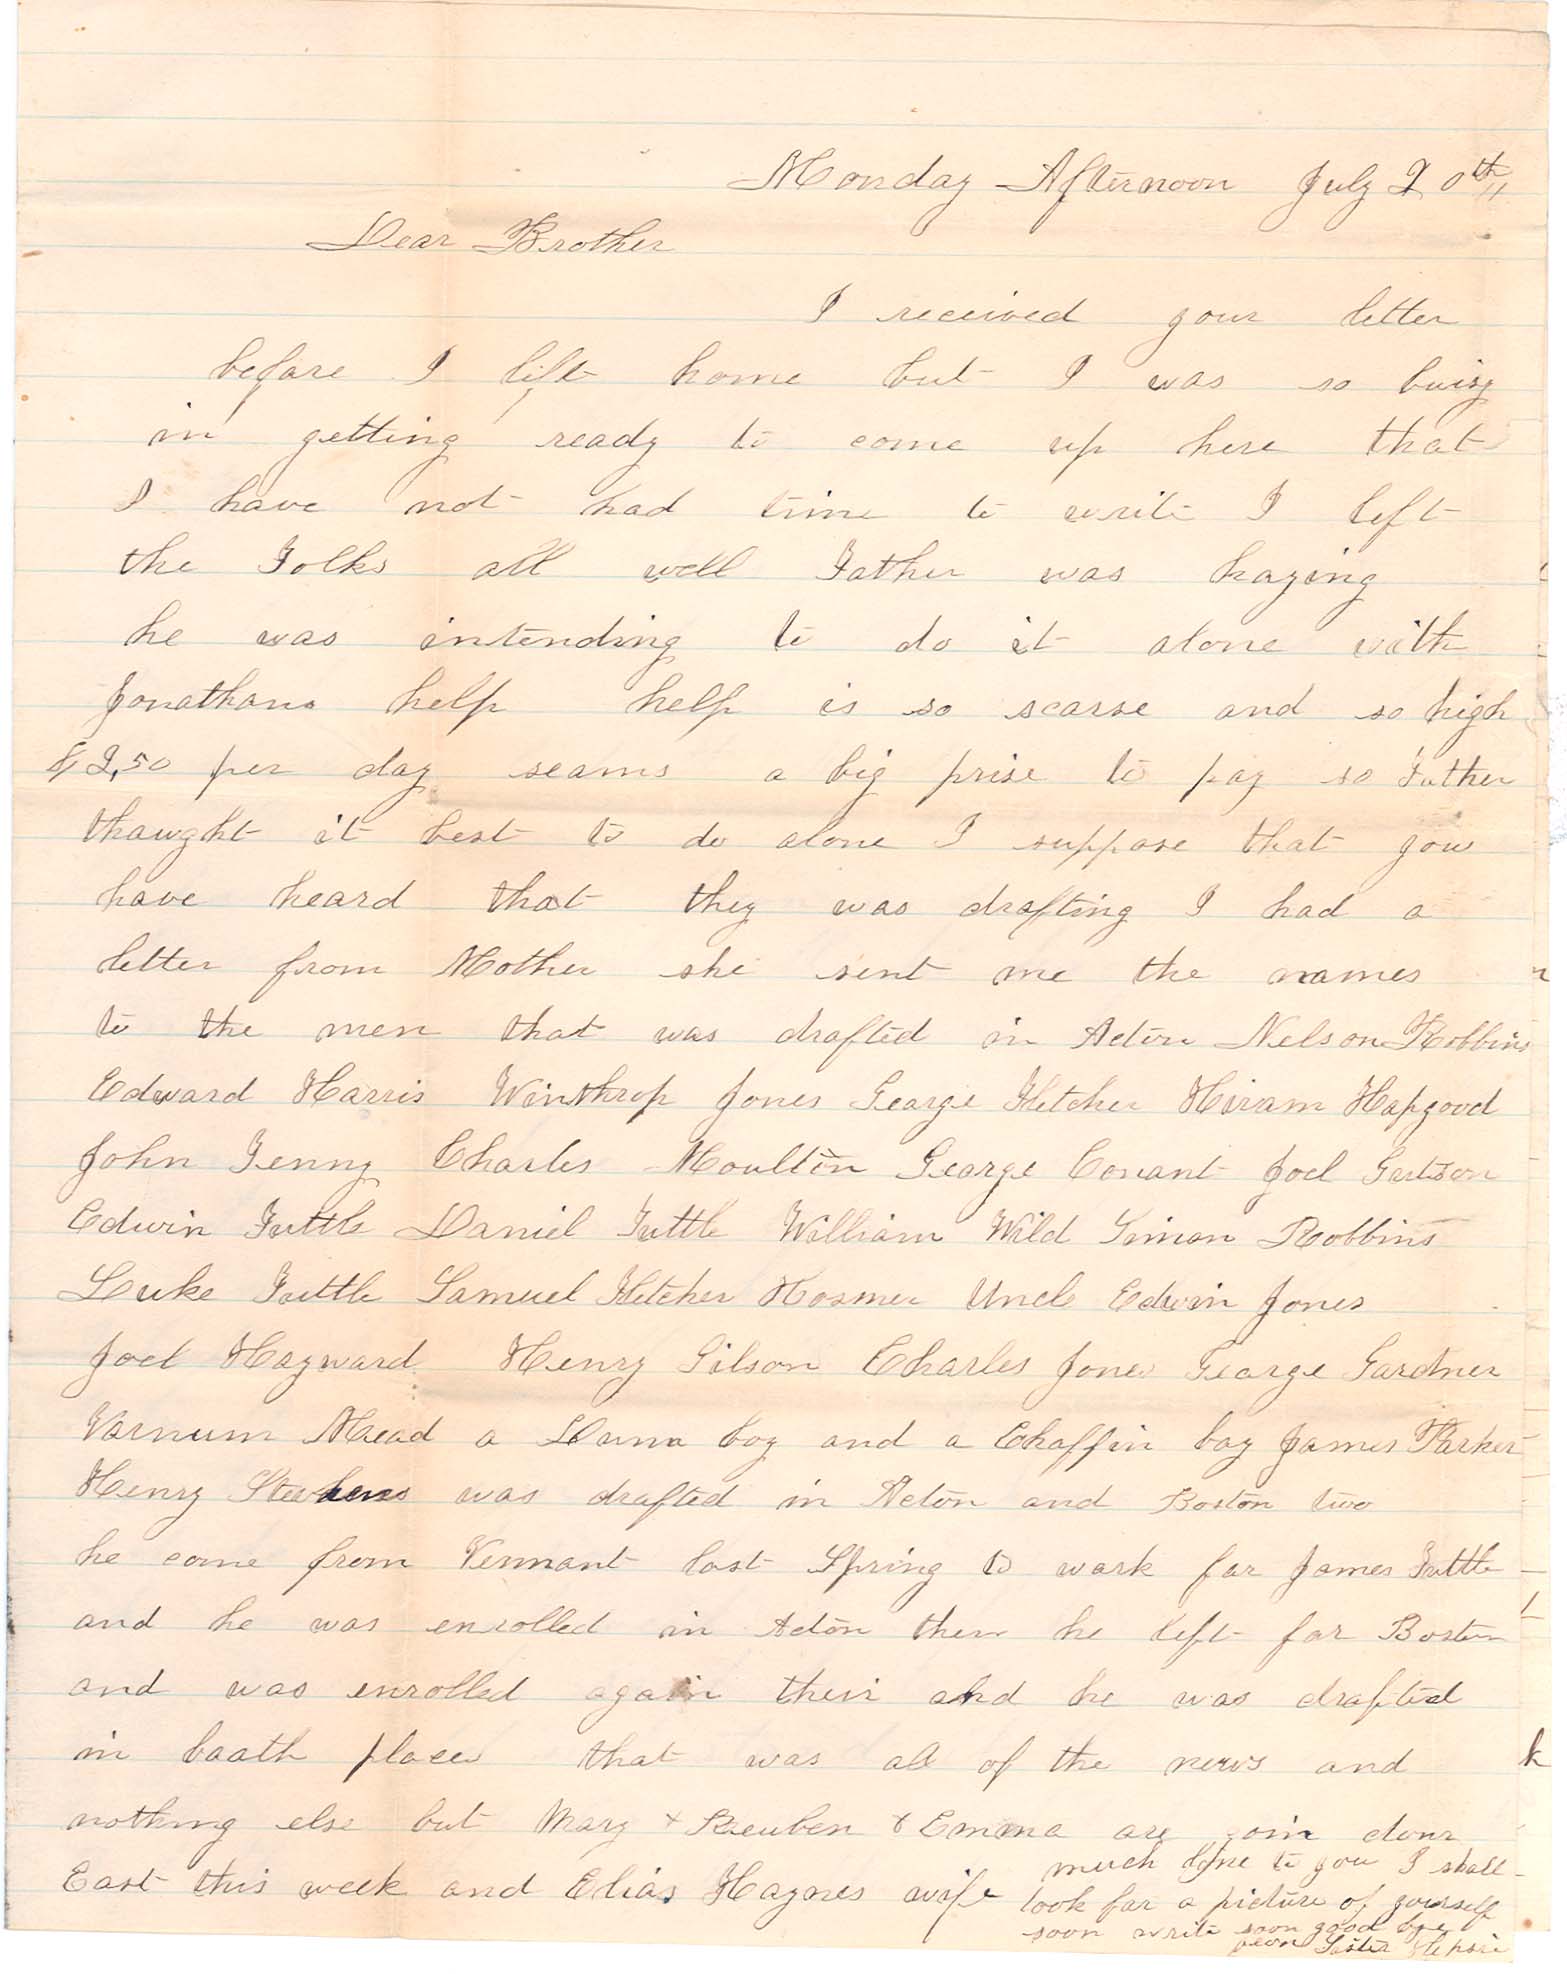 Monday Afternoon July 20th
Dear Brother
I received your letter
before I lift home but I was so buisy
in getting ready to come up here that
I have not had time to write I left
the Folks all well Father was haying
he was intending to do it alone with
Jonathans help help is so scarse and so high
$2,50 per day seams a big prise to pay so Father
thawght it best to do alone I suppose that you
have heard that they was drafting I had a
letter from Mother she sent me the names
to the men that was drafted in Acton Nelson Robbins
Edward Harris Winthrop Jones George Fletcher Hiram Hapgood
John Fenny Charles Moulton George Conant Joel
Edwin Tuttle Daniel Tuttle William Wild Simon Robbins
Luke Tuttle Samuel Fletcher Hosmer Uncle Edwin Jones
Joel Hayward Henry Gilson Charles Jones George Gardner
Varnum Mead a Dunn boy and a Chaffin boy James Parker
Henry Stevens was drafted in Acton and Boston two
he come from Vermant last Spring to work for James Tuttle
and he was enrolled in Acton then he left for Boston
and was enrolled again their and he was drafted
in boath places that was all of the news and
nothing else but Mary & Reuben & Emma are goin down
East this week and Elias Haynes wife
much love to you I shall
look for a picture of yourself
soon write soon good bye
Sister